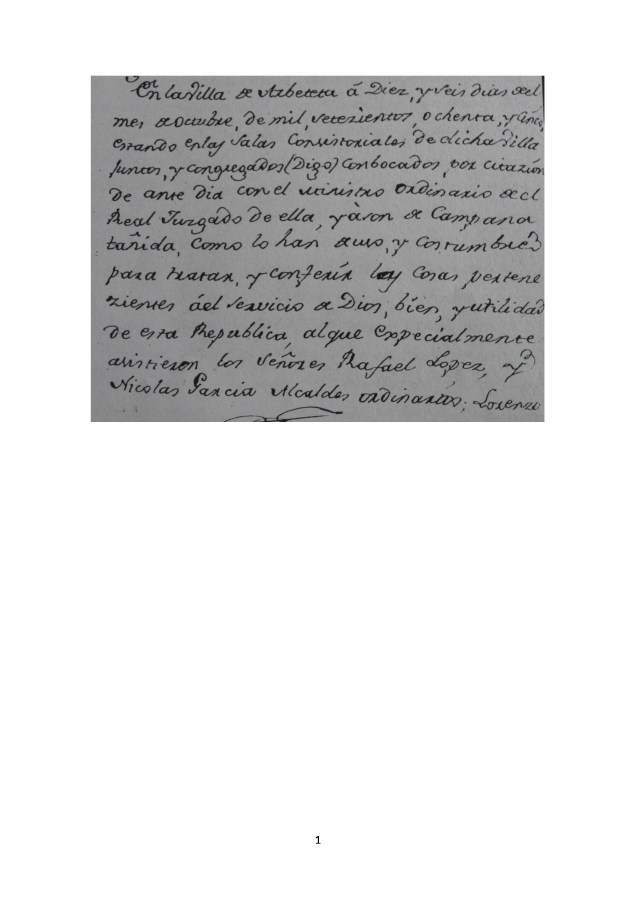 En la Villa de Arbeteta á Diez, y seis dias del
mes de octubre, de mil, setezientos, ochenta, y cinco,
estando en las Salas Consistoriales de dicha Villa
Juntos, y congregados (Digo) Conbocados, por citazion
de ante dia con el Ministro ordinario del
Real Juzgado de ella, y à son de Campana
tañida, como lo han de uso, y costumbre
para tratar, y conferir las Cosas pertene
zientes áel servicio de Dios, bien, y utilidad
de esta Republica, al que expecialmente
asistieron los Señores Rafael Lopez, y
Nicolas Garcia Alcaldes ordinarios; Lorenzo
1